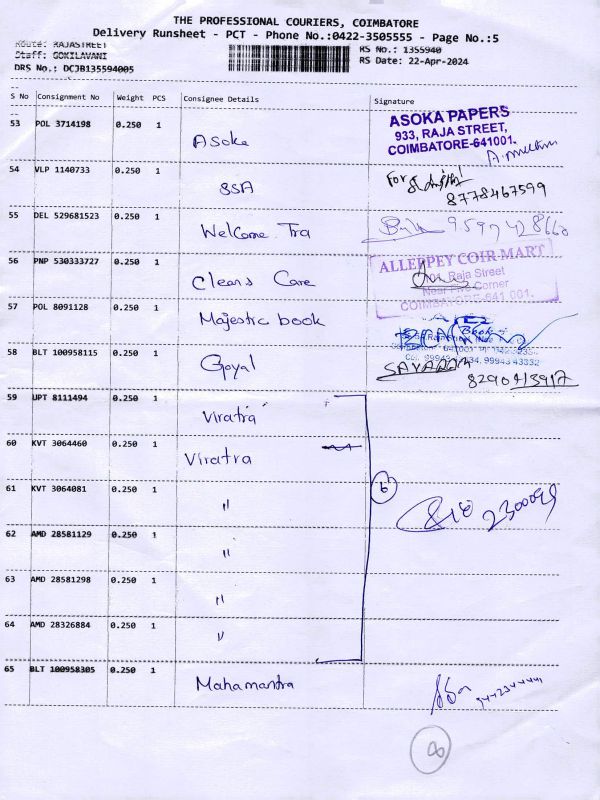 THE PROFESSIONAL COURIERS, COIMBATORE
Delivery Runsheet - PCT - Phone No.:0422-3505555 - Page No.:5
Route: RAJASTREET
Staff: GOKILAVANI
DRS No.: DCJB135594005
RS No.: 1355940
RS Date: 22-Apr-2024
S No Consignment No Weight PCS Consignee Details Signature
53 POL 3714198 0.250 1 Asoka
ASOKA PAPERS
933, RAJA STREET,
COIMBATORE-641001.
54 VLP 1140733 0.250 1 SSA For
8778467599
55 DEL 529681523 0.250 1 Welcome Tra
56 PNP 530333727 0.250 1 Cleans Care
ALLEPPEY COIR MART
Raja Street
Corner
COIMBATORE-641 001.
57 POL 8091128 0.250 1 Majestic book
58 BLT 100958115 0.250 1 Goyal
59 UPT 8111494 0.250 1 Viratra
60 KVT 3064460 0.250 1 Viratra
61 KVT 3064081 0.250 1 "
6
62 AMD 28581129 0.250 1 "
63 AMD 28581298 0.250 1 "
64 AMD 28326884 0.250 1 "
65 BLT 100958305 0.250 1 Mahamantra